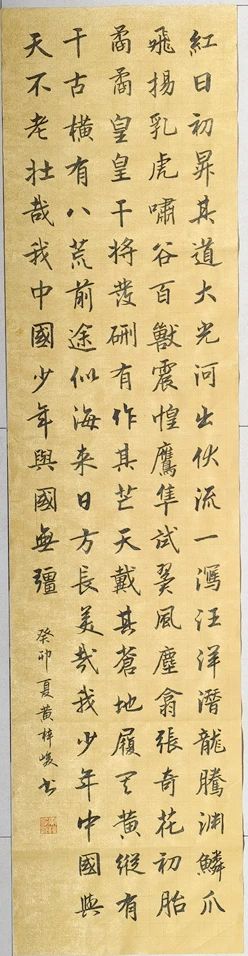 紅日初昇其道大光河出伏流一瀉汪洋潛龍騰淵鱗爪
飛揚乳虎嘯谷百獸震惶鷹隼試翼風塵翕張奇花初胎
矞矞皇皇干將發硎有作其芒天戴其蒼地履其黃縱有
千古橫有八荒前途似海来日方長美哉我少年中國與
天不老壮哉我中國少年與國無疆
癸卯夏黄梓峻书